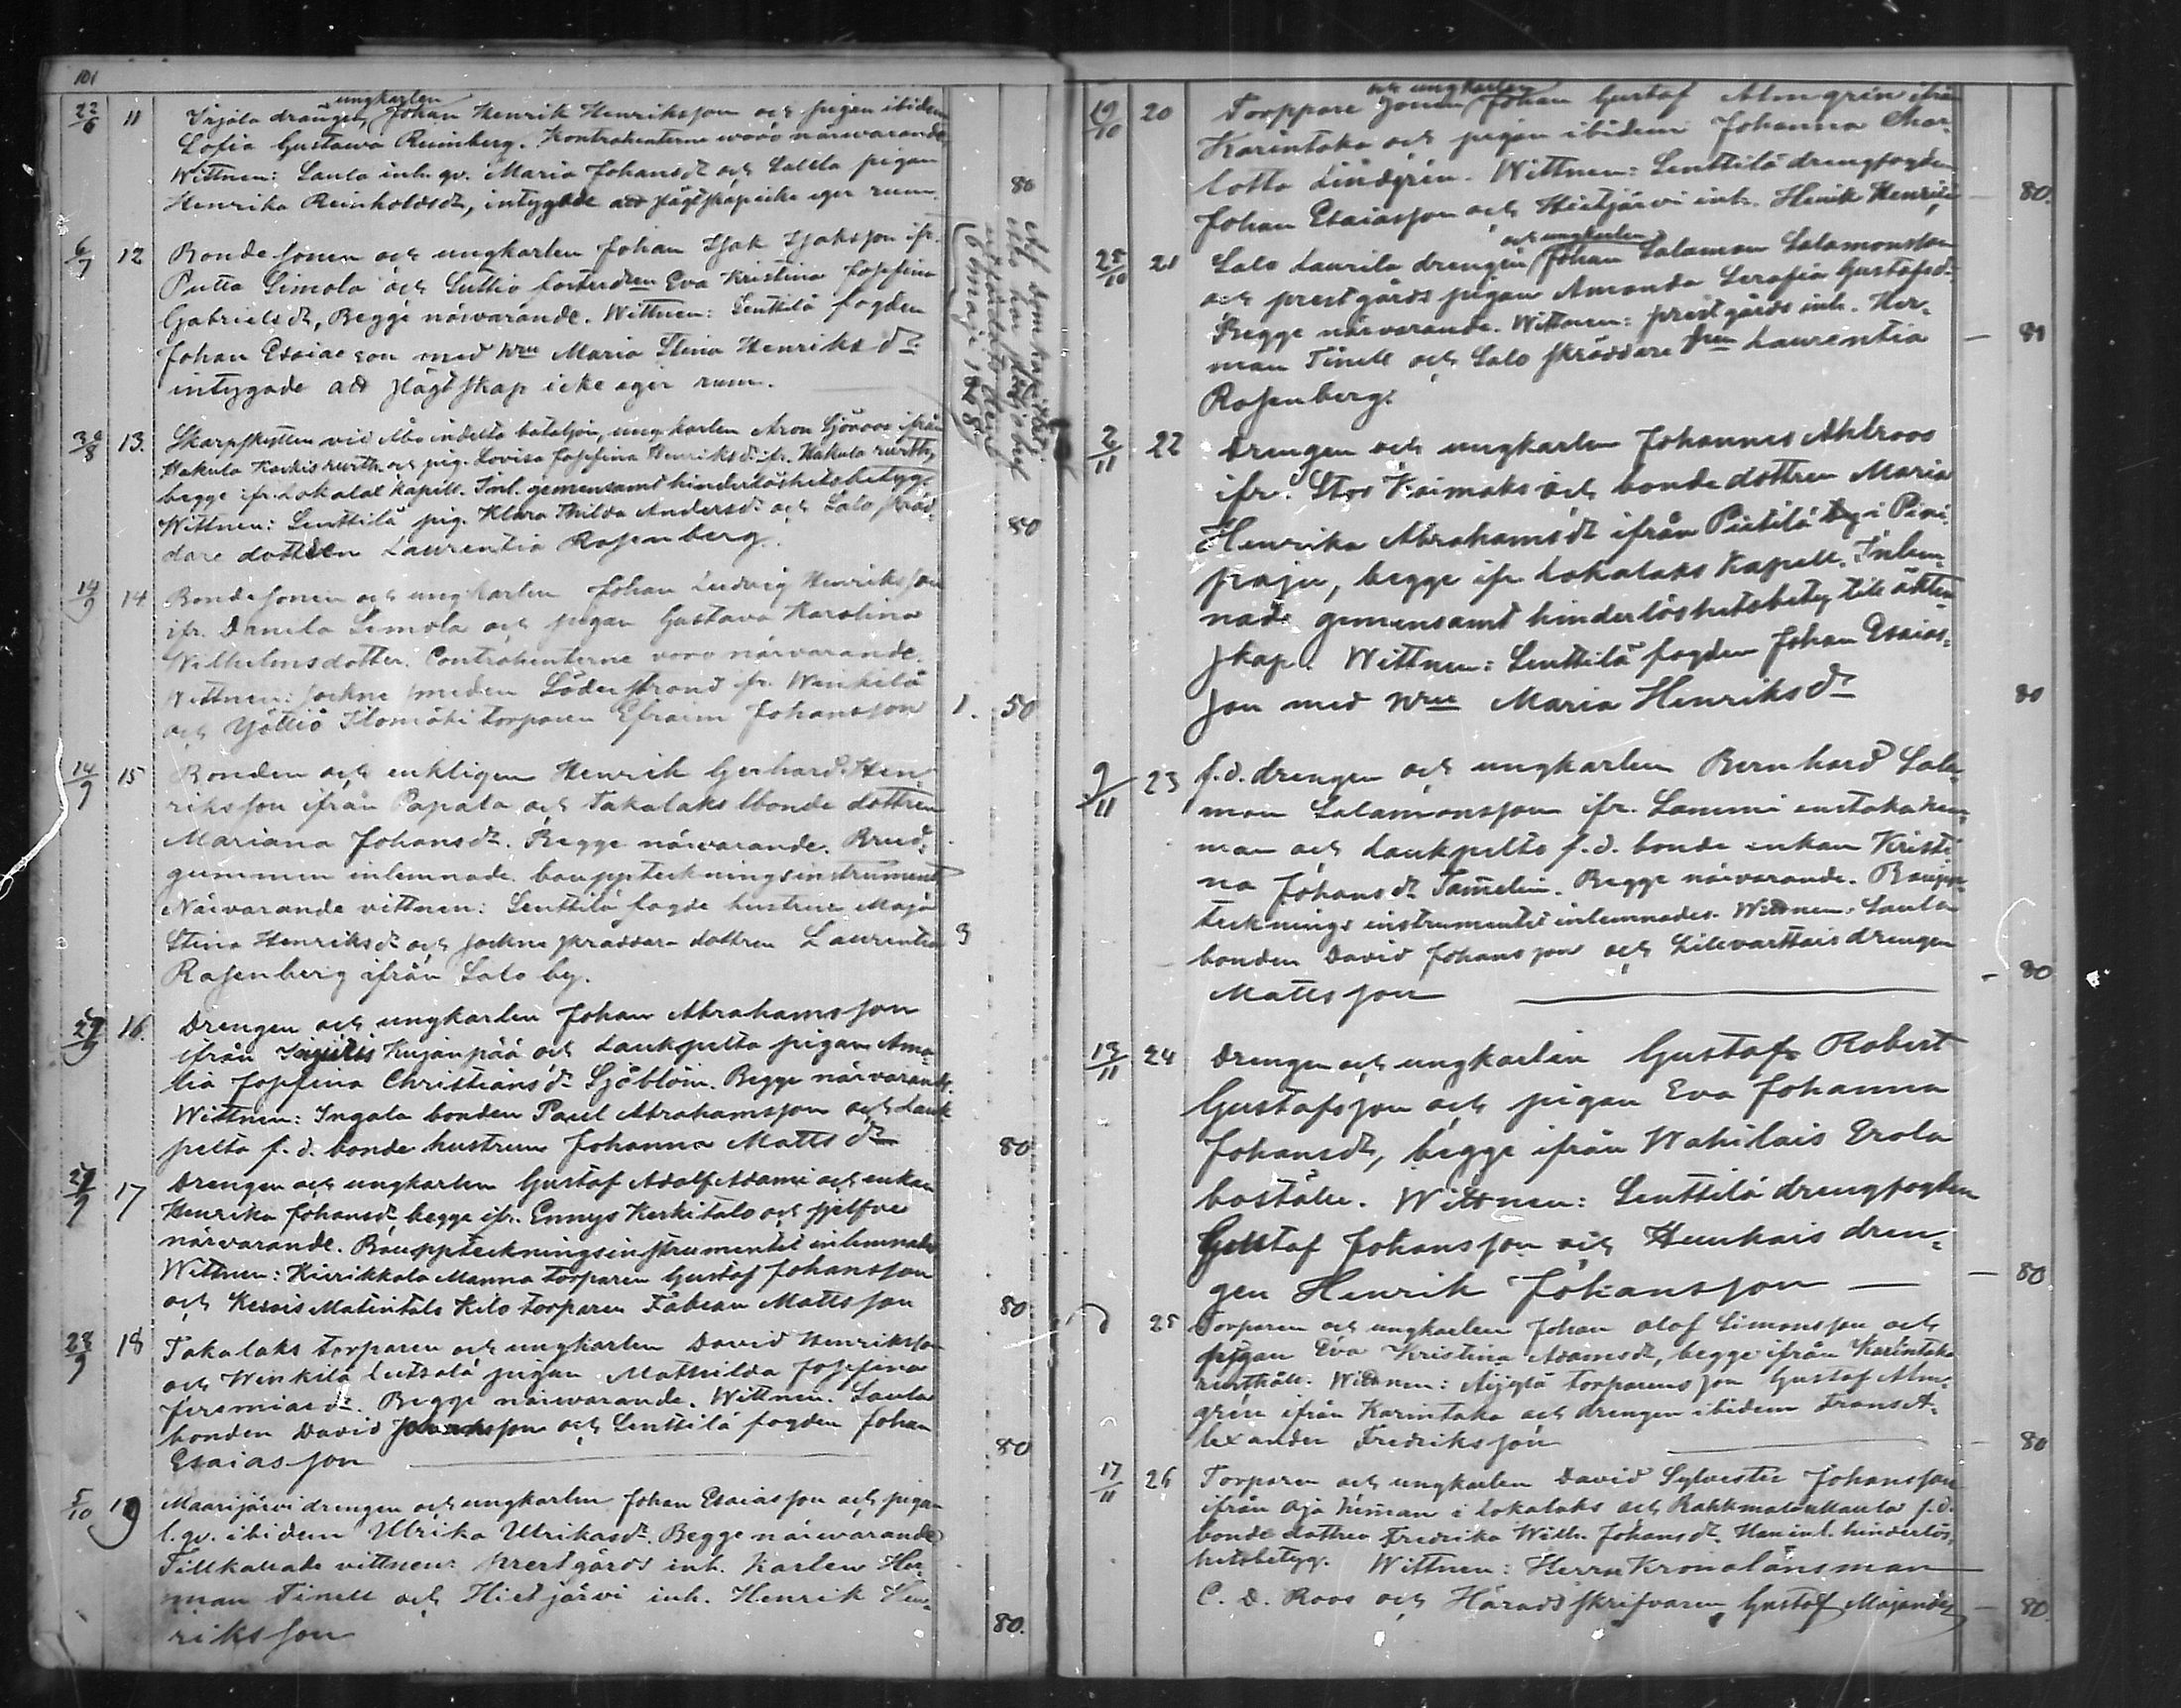 101
22/6 11 drängen, ungkarlen Johan Henrik Henriksson och pigan ibidem
Sofia Gustawa Reimberg. Kontrahenterne woro närwarande
Wittnen: Laula inh. qv. Maria Johansdr och pigan
Henrika Reinholdsdr, intygade att slägtskap icke eger rum. 80
6/7 12 Bondesonen och ungkarlen Johan Isak Isaksson ifr.
Putta Simola och Suttio fosterdtren Eva Kristina Josefina
Gabrielsdr, Begge närvarande. Wittnen: Senttilä fogden
Johan Esaiasson med hru Maria Stina Henriksdr
intygade att slägtskap icke eger rum.
30/8 13. Skarpskytten vid Åbo indelta bataljon, ungkarlen Aron Sjöroos ifrån
Hakula rusth. och pig. Lovisa Josefina Henriksdr ifr. Hakula rusth,
begge ifr. Lokalaks kapell. Inl. gemensamt hinderlöshetsbetyg.
Wittnen: Senttilä pig. Klara Thilda Andersdr och Salo skräd-
dare dottren Laurentia Rosenberg. 80
14/9 14 Bondesonen och ungkarlen Johan Ludvig Henriksson
ifr. Danila Simola och pigan Gustava Karolina
Wilhelmsdotter. Contrahenterne voro närvarande.
Wittnen: sockne smeden Söderstrand fr. Winkilä
och Yöttiö Ilomäki torparen Efraim Johansson 1. 50
14/9 15 Bonden och enklingen Henrik Gerhard Hen-
riksson ifrån Papala och Takalaks bonde dottren
Mariana Johansdr. Begge närvarande. Brud-
gummen inlemnade bouppteckningsinstrument
Närvarande vittnen: Senttilä fogde hustrun Maja
Stina Henriksdr och sockne skräddare dottren Laurentia 3
Rosenberg ifrån Salo by.
29/9 16. Drengen och ungkarlen Johan Abrahamsson
ifrån Kujanpää och Laukpelto pigan Ama-
lia Josefina Christiansdr Sjöblom. Begge närvarande.
Wittnen: Ingala bonden Paul Abrahamsson och Lauk-
pelto f. d. bonde hustrun Johanna Mattsdr 80
29/9 17 Drengen och ungkarlen Gustaf Adolf Adami och enkan
Henrika Johansdr begge ifr. Ennys Kerkitalo och sjelfve
närvarande. Bouppteckningsinstrumentet inlemnades
Wittnen: Hierikkala Manna torparen Gustaf Johansson
och Matintalo Kilo torparen Fabian Mattsson 80
28/9 18 Takalaks torparen och ungkarlen David Henriksson
och Winkilä Lutsala pigan Mathilda Josefina
Jeremiasdr. Begge närvarande. Wittnen. Laula
bonden David Johansson och Senttilä fogden Johan
Esaiasson 80
5/10 19 Maarijärvi drengen och ungkarlen Johan Esaiasson och pigan
l. qv. ibidem Ulrika Ulrikasdr. Begge närvarande
Tillkallade vittnen: Prestgårds inh. Karlen Her-
man Tinell och Hietjärvi inh. Henrik Hen-
riksson 80.
19/10 20 Torppare sonen och ungkarlen Johan Gustaf Almgrén ifrån
Karintaka och pigan ibidem Johanna Char-
lotta Lindgrén. Wittnen: Senttilä drengfogden
Johan Esaiasson och Hietjärvi inh. Henrik Henriks. 80.
25/10 21 Salo Laurila drengen och ungkarlen Johan Salamon Salamonsson
och prestgårds pigan Amanda Serafia Gustafsdr.
Begge närvarande. Wittnen: prestgårds inh. Her-
man Tinell och Salo skräddare Laurentia 80
Rosenberg.
2/11 22 Drengen och ungkarlen Johannes Ahlroos
ifr. Stor Kaimaks och bonde dottren Maria
Henrika Abrahamsdr ifrån Pietilä by i Pini-
paju, begge ifr. Lokalaks Kapell. Inlem-
nade gemensamt hinderlöshetsbetyg till äkten-
skap. Wittnen: Senttilä fogden Johan Esaias-
son med hru Maria Henriksdr 80
9/11 23 f. d. drengen och ungkarlen Bernhard Sala-
mon Salamonsson ifr. Lammi enstaka hem-
man och Laukpelto f. d. bonde enkan Kristi-
na Johansdr Tamelin. Begge närvarande. Boupp-
tecknings instrumentet inlemnades. Wittnen: Laula
bonden David Johansson och Lilevarttais drengen
Mattsson 80
13/11 24 Drengen och ungkarlen Gustaf Robert
Gustafsson och pigan Eva Johanna
Johansdr, begge ifrån Wahilais Erola
boställe. Wittnen: Senttilä drengfogden
Gustaf Johansson och Hunkais dren-
gen Henrik Johansson 80
25 Torparen och ungkarlen Johan Olof Simonsson och
pigan Eva Kristina Adamsdr, begge ifrån Karintaka
rusthåll. Wittnen: Äijylä torparensson Gustaf Alm-
grén ifrån Karintaka och drengen ibidem Frans A-
lexander Fredriksson 80
17/11 26 Torparen och ungkarlen David Sylvester Johansson
ifrån Oja heman i Lokalaks och f. d.
bonde dottren Fredrika Wilh. Johansdr. Han inl. hinderlös-
hetsbetyg. Wittnen: Herrn Kronolänsman
C. D. Roos och Häradsskrifvaren Gustaf Majander 80.